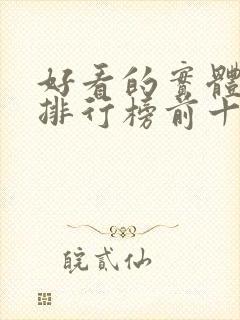 好看的實體
排行榜前十
皖貳仙